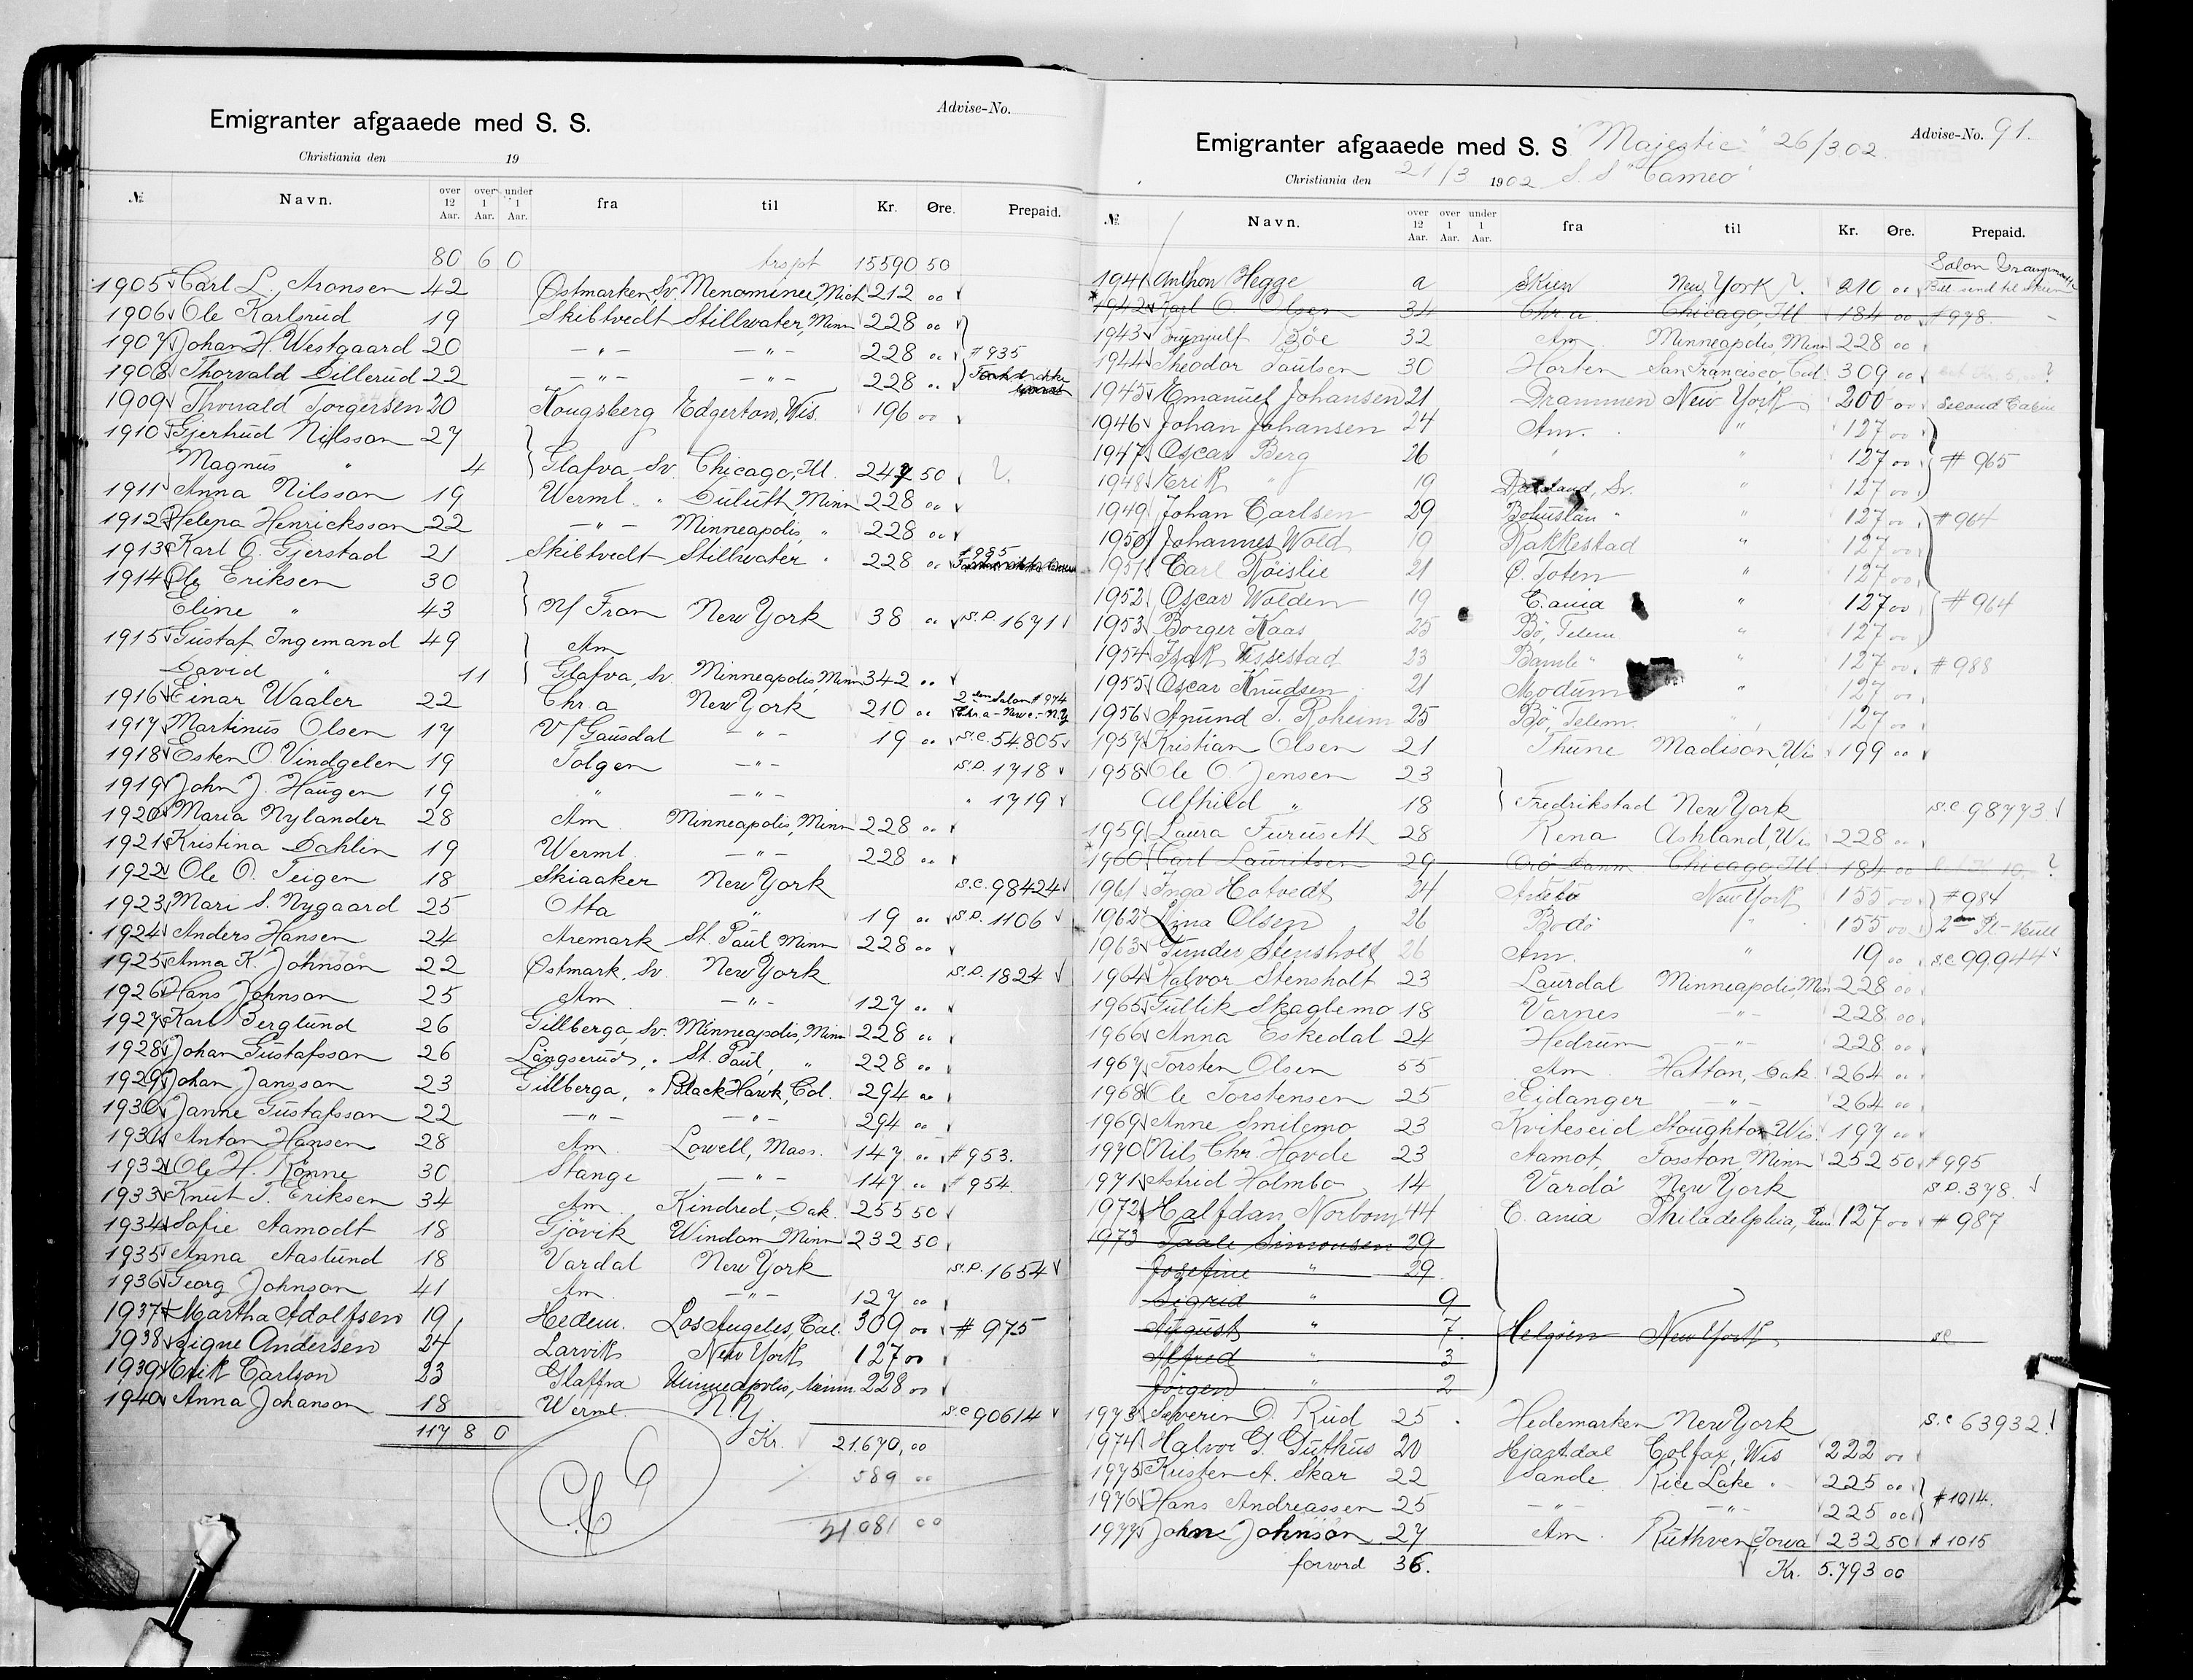 Advise-No.
Emigranter afgaaede med S. S.
Christiania den 19
№ Navn. over 12 Aar. over 1 Aar. under 1 Aar. fra til Kr. Øre. Prepaid.
80 6 0 trspt 15590 50
1905 Carl L. Aronsen 42 Østmarken, Sv. Menominee Mich 212 00
1906 Ole Karlsrud 19 Skibtvedt Stillwater, Minn 228 00
1907 Johan H. Westgaard 20 —"— —"— 228 00 # 935
1908 Thorvald Dillerud 22 —"— —"— 228 00
1909 Thorvald Torgersen 20 Kongsberg Edgerton, Wis. 196 00
1910 Gjertrud Nilsson 27
Magnus " 4 Glafva, Sv. Chicago, Ill. 247 50
1911 Anna Nilsson 19 Werml. " Duluth, Minn 228 00
1912 Helena Henricksson 22 —"— Minneapolis, " 228 00
1913 Karl O. Gjerstad 21 Skibtvedt Stillwater " 228 00 # 935
1914 Ole Eriksen 30
Eline " 43 N/ Fron New York 38 00 S.P. 1671
1915 Gustaf Ingemand 49 Am
David " 11 Glafva, Sv Minneapolis, Minn 342 00
1916 Einar Waaler 22 Chr.a New York 210 00 2den Salon # 974
1917 Martinus Olsen 17 V/ Gausdal —"— 19 00 S.C. 54.805
1918 Esten O. Vindgelen 19 Tolgen —"— S.P. 1718
1919 John J. Haugen 19 " —"— " 1719
1920 Maria Nylander 28 Am Minneapolis, Minn 228 00
1921 Kristina Dahlin 19 Werml. —"— 228 00
1922 Ole O. Teigen 18 Skiaaker New York S.C. 98424
1923 Mari S. Nygaard 25 Otta " 19 00 S.P. 1106
1924 Anders Hansen 24 Aremark St. Paul Minn 228 00
1925 Anna K. Johnson 22 Østmark, Sv. New York S.P. 1824
1926 Hans Johnson 25 Am —"— 127 00
1927 Karl Berglund 26 Gillberga, Sv. Minneapolis, Minn 228 00
1928 Johan Gustafsson 26 Långserud, " St. Paul, " 228 00
1929 Johan Jansson 23 Gillberga, " Black Hawk, Col. 294 00
1930 Janne Gustafsson 22 —"— —"— 294 00
1931 Anton Hansen 28 Am. Lowell, Mass. 147 00 # 953.
1932 Ole H. Rönne 30 Stange —"— 147 00 # 954
1933 Knut T. Eriksen 34 Am. Kindred, Dak. 255 50
1934 Sofie Aamodt 18 Gjövik Windom Minn 232 50
1935 Anna Aaslund 18 Vardal New York S.P. 1654
1936 Georg Johnson 41 Am. —"— 127 00
1937 Martha Adolfsen 19 Hedem. Los Angeles, Cal. 309 00 # 975
1938 Signe Andersen 24 Larvik New York 127 00
1939 Erik Carlson 23 Glaffva Minneapolis, Minn. 228 00
1940 Anna Johanson 18 Werml. N.Y. S.C 90614
117 8 0 Kr. 21.670,00
589 00
21 081 00
Advise-No. 91.
Emigranter afgaaede med S. S "Majestic" 26/3 02
Christiania den 21/3 1902 S. S "Cameo"
№ Navn. over 12 Aar. over 1 Aar. under 1 Aar. fra til Kr. Øre. Prepaid.
1941 Anthon Hegge a Skien New York 210 00
1942 Karl O. Olsen 34 Chr.a Chicago, Ill 184 00 # 978
1943 Brynjulf Böe 32 Am Minneapolis, Minn 228 00
1944 Theodor Paulsen 30 Horten San Francisco, Cal. 309 00
1945 Emanuel Johansen 21 Drammen New York 200 00 Second Cabin
1946 Johan Johansen 24 Am. " 127 00
1947 Oscar Berg 26 " " 127 00 # 965
1948 Erik " 19 " 127 00
1949 Johan Carlsen 29 Bohuslän " " 127 00 # 964
1950 Johannes Wold 19 Rakkestad " 127 00
1951 Carl Röislie 21 Ø. Toten " 127 00
1952 Oscar Wolden 19 C.ania " 127 00 # 964
1953 Borger Kaas 25 Bö, Telem " 127 00
1954 Isak Tessestad 23 Bamle " " 127 00 # 988
1955 Oscar Knudsen 21 Modum " 127 00
1956 Anund T. Roheim 25 Bö, Telem. " 127 00
1957 Kristian Olsen 21 Thune Madison, Wis 199 00
1958 Ole O. Jensen 23
Alfhild " 18 Fredrikstad New York S.C 98773
1959 Laura Furuseth 28 Rena Ashland, Wis 228 00
1960 Carl Lauritsen 29 Chicago, Ill 184 00
1961 Inga Hotvedt 24 New York 155 00 # 984
1962 Lina Olsen 26 Bodö " 155 00 2den Pl - Hull
1963 Gunder Stensholt 26 Am. " 19 00 S.C 99.944
1964 Halvor Stensholt 23 Laurdal Minneapolis, Min 228 00
1965 Gullik Skaglemo 18 Varnes —"— 228 00
1966 Anna Eskedal 24 Hedrum —"— 228 00
1967 Torsten Olsen 55 Am Hatton, Dak. 264 00
1968 Ole Torstensen 25 Eidanger —"— 264 00
1969 Anne Smilemo 23 Kviteseid Stoughton Wis. 197 00
1970 Nils Chr. Hovde 23 Aamot Fosston, Minn 252 50 # 995
1971 Astrid Holmbo 14 Vardö New York S.P. 378
1972 Halfdan Norbom 44 C. ania Philadelphia, Penn 127 00 # 987
1973 Paale Simonsen 29
Josefine " 29
Sigrid " 9
August " 7
Alfred " 3 Helgöen New York SC
Jörgen " 2
1973 Severin O. Rud 25 Hedemarken New York S.C 63932
1974 Halvor G. Guthus 20 Hjartdal Colfax, Wis 222 00
1975 Kristen A. Skar 22 Sande Rice Lake " 225 00
1976 Hans Andreassen 25 —"— —"— 225 00 # 1014.
1977 John Johnson 27 Am. Ruthven, Iowa 232 50 # 1015
forward 36. Kr. 5.793 00